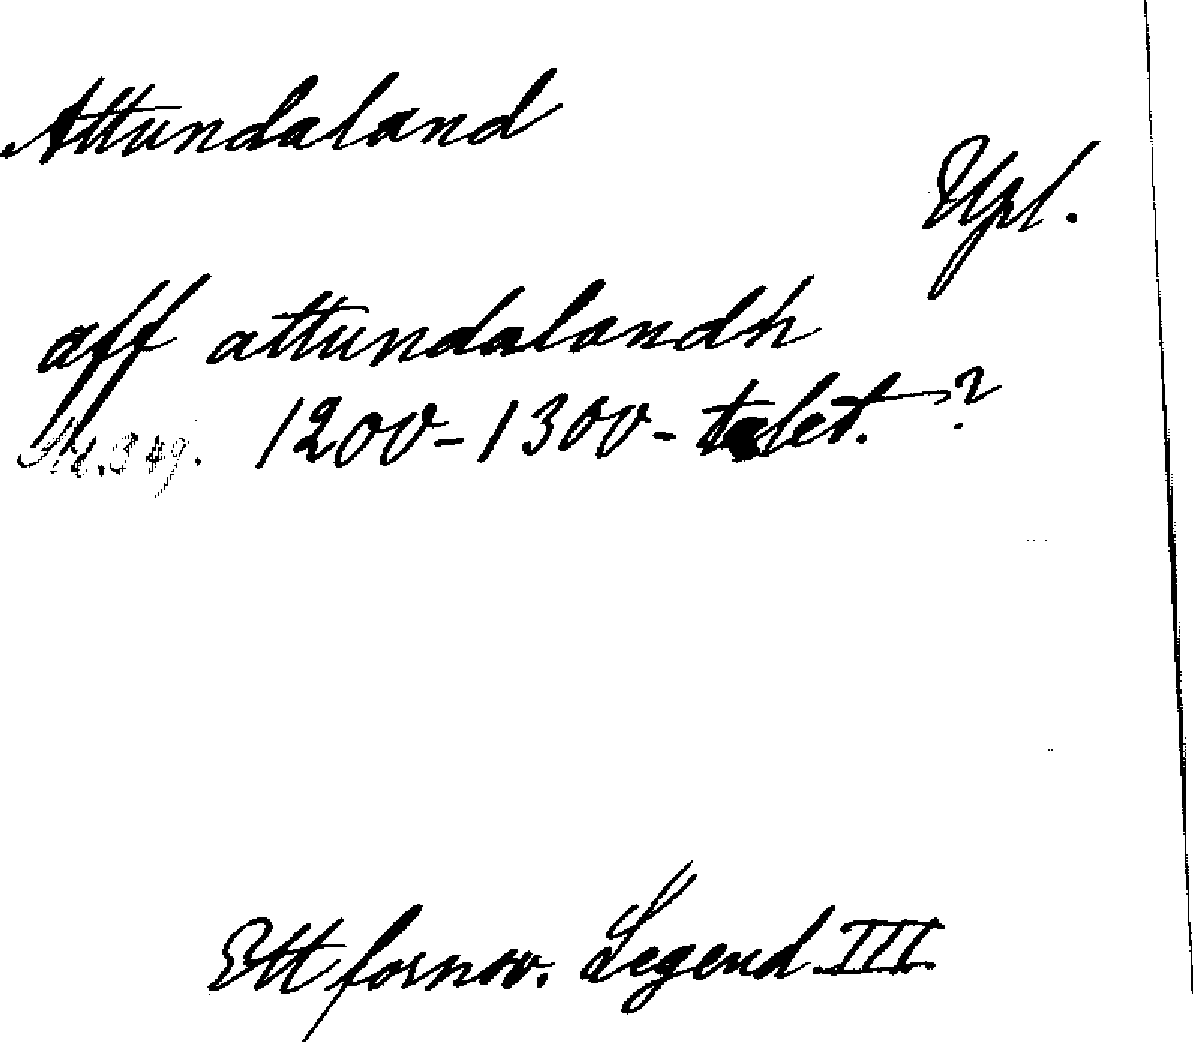 Attundaland
Upl.
aff attundalandh
1200-1300-talet. ?
Ett fornsv. Legend. III.